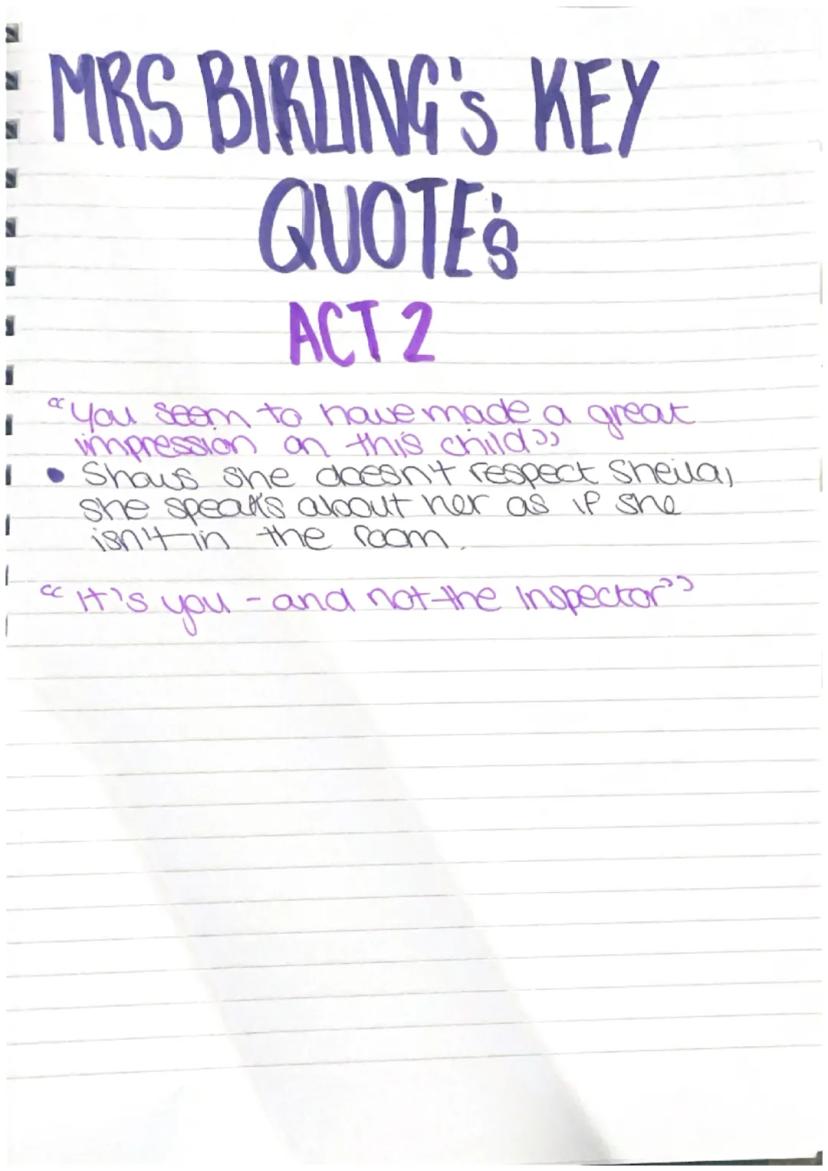 MRS BIRLING's KEY
QUOTE's
ACT 2
“You seem to have made a great
impression on this child”
• Shows she doesn't respect Sheila,
she speaks about her as if she
isn't in the room.
“It's you - and not the Inspector”